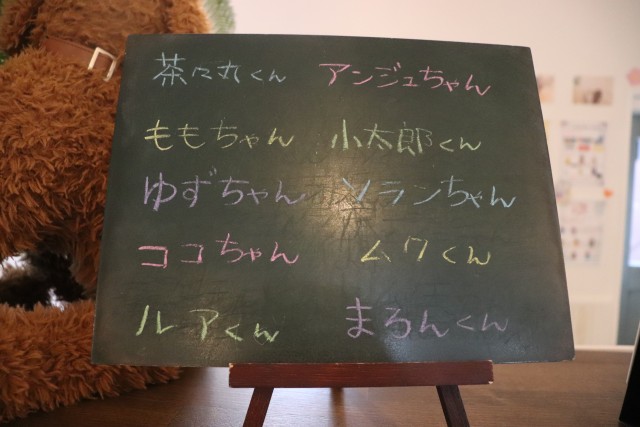 茶々丸くん アンジュちゃん
ももちゃん 小太郎くん
ゆずちゃん ソランちゃん
ココちゃん ムクくん
ルアくん まろんくん